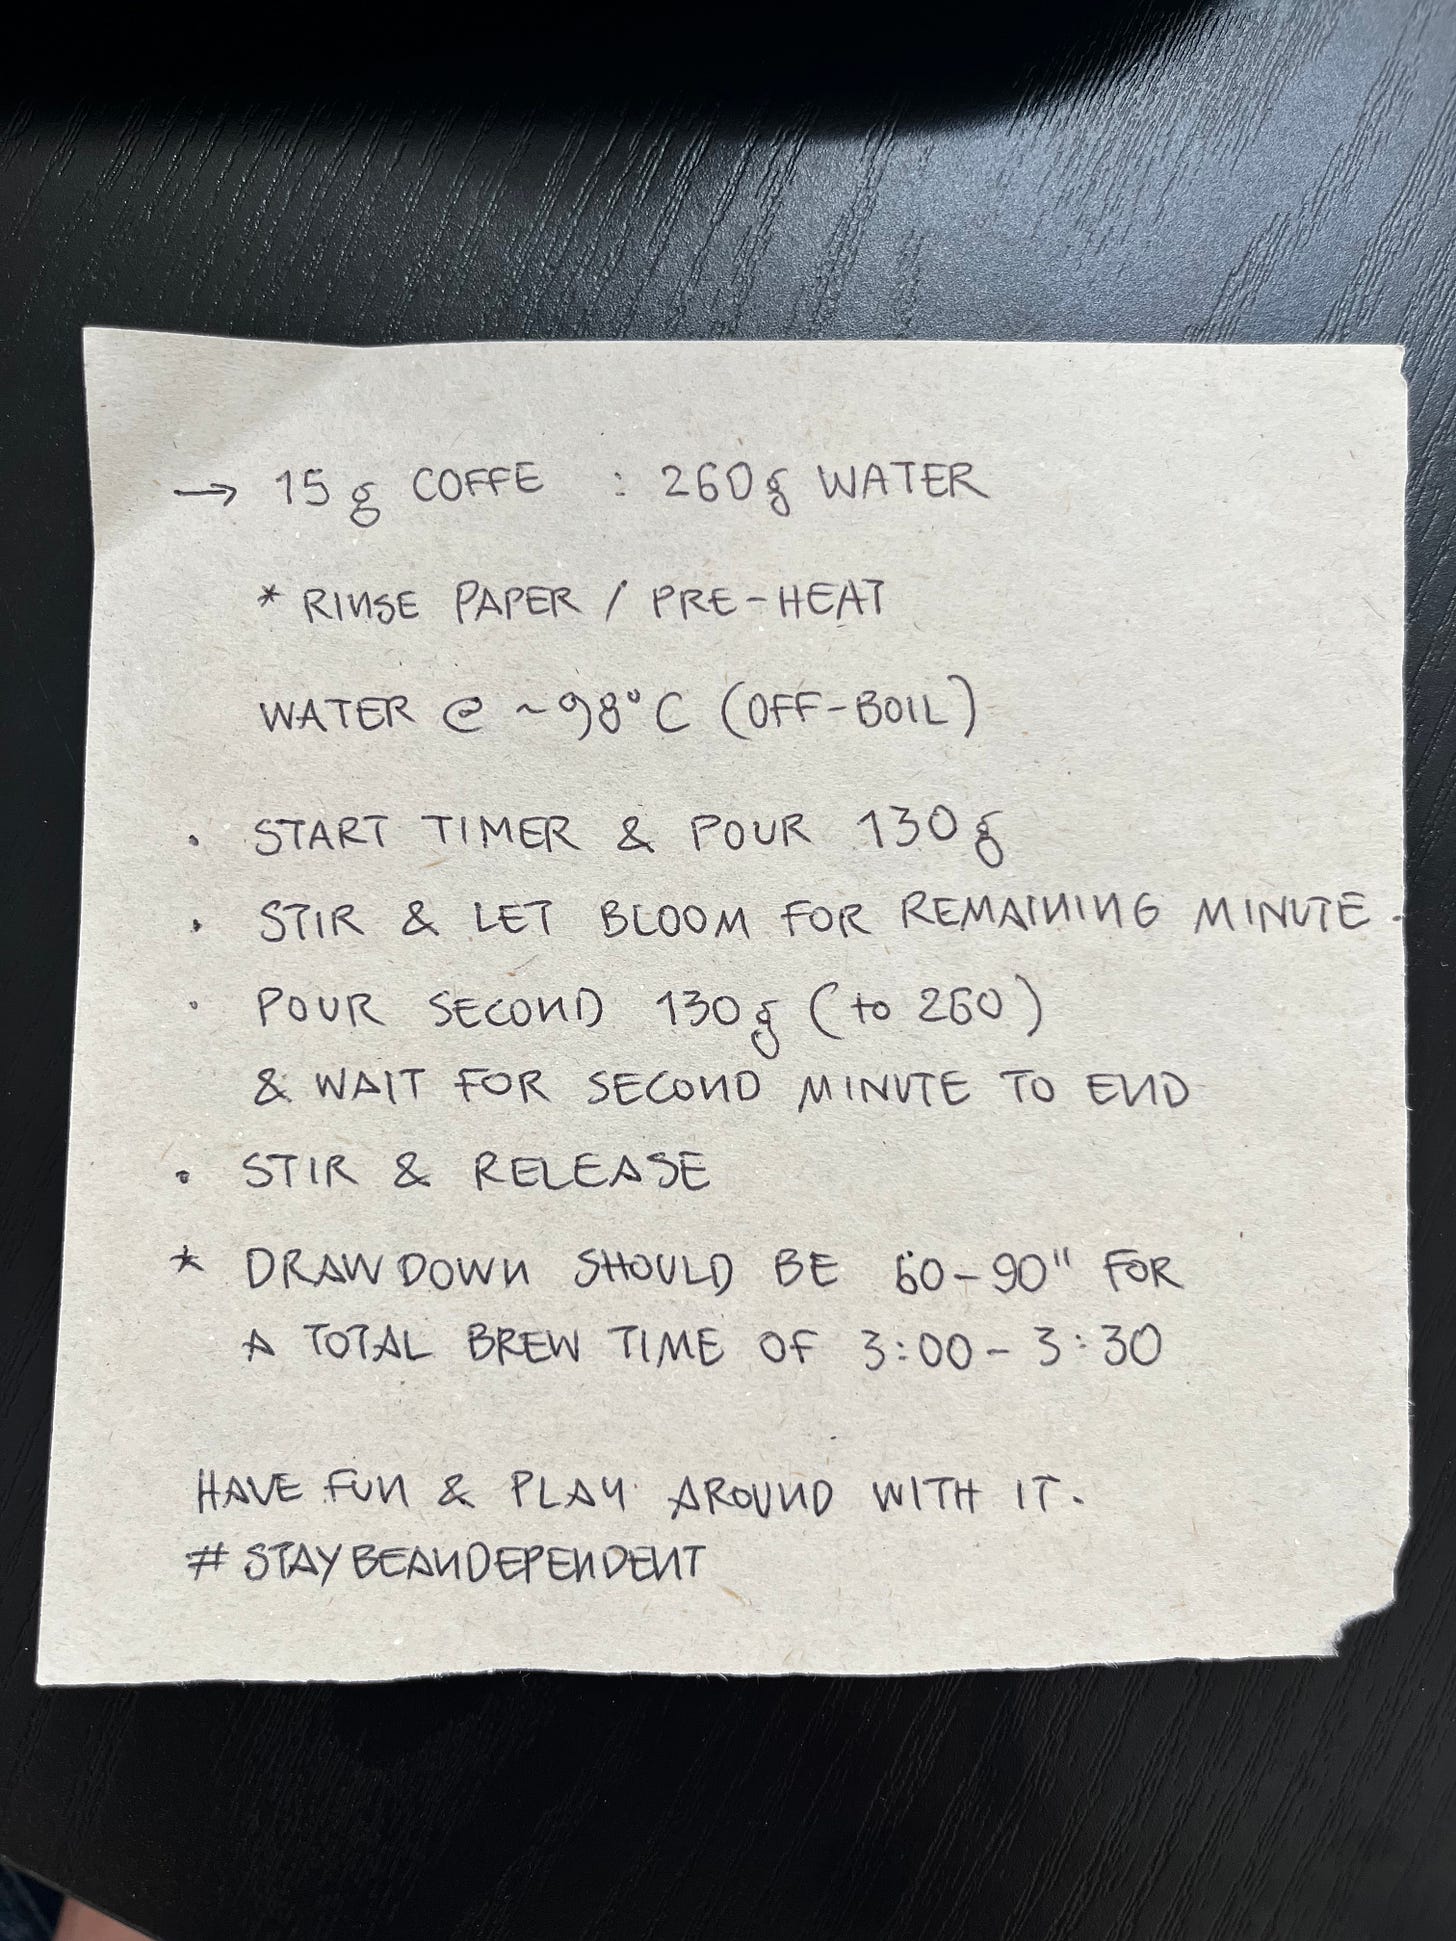 → 15g COFFE : 260g WATER
* RINSE PAPER / PRE-HEAT
WATER @ ~98°C (OFF-BOIL)
• START TIMER & POUR 130g
• STIR & LET BLOOM FOR REMAINING MINUTE.
• POUR SECOND 130g (to 260)
& WAIT FOR SECOND MINUTE TO END
• STIR & RELEASE
* DRAWDOWN SHOULD BE 60-90" FOR
A TOTAL BREW TIME OF 3:00-3:30
HAVE FUN & PLAY AROUND WITH IT.
#STAYBEANDEPENDENT